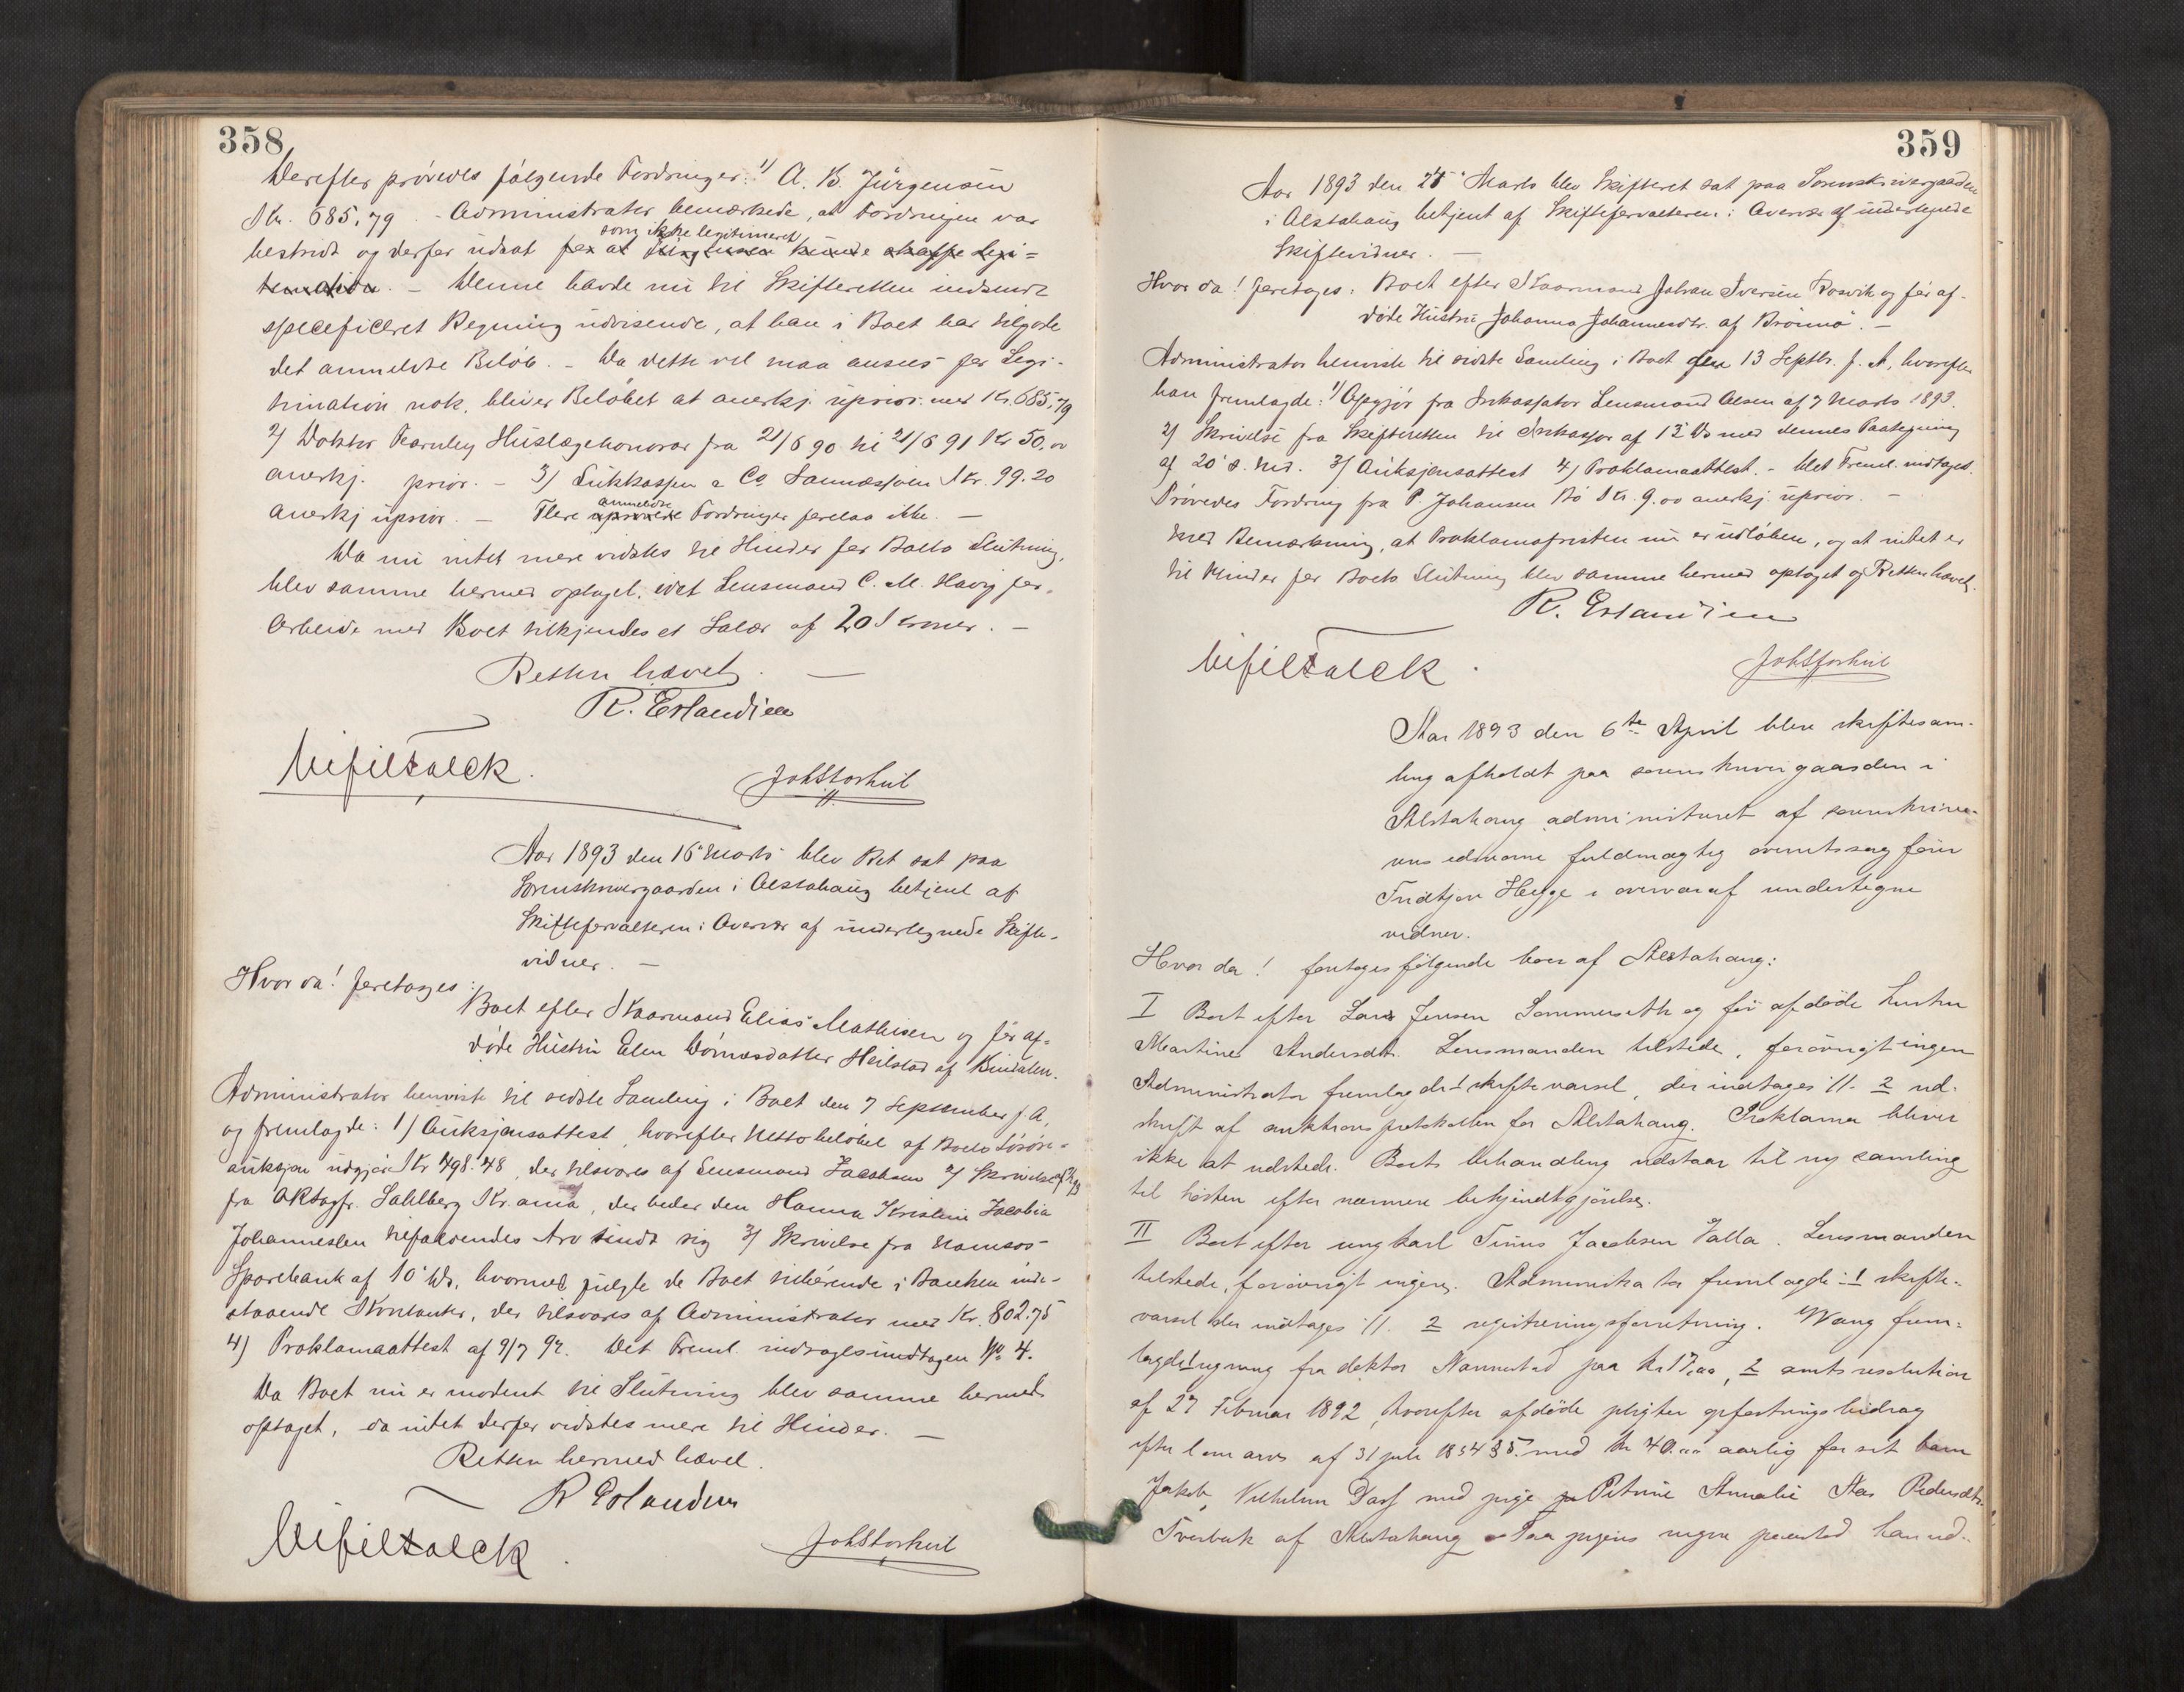 358
Derefter prövedes fölgende Fordringer: 1) A. B. Jürgensen
Kr. 685,79. - Administrator bemærkede, at Fordringen var
som ikke legitimeret
bestridt og derfor udsat for at Jürgensen kunde skaffe Legi=
timation. - Denne havde nu til Skifteretten indsendt
specificeret Regning udvisende, at han i Boet har tilgode
det anmeldte Belöb. - Da dette vel maa ansees for Legi-
timation nok, bliver Belöbet at anerkj. uprior. med Kr. 685,79
2) Doktor Fearnley Huslægehonorar fra 21/6 90 til 21/6 91 Kr 50,00
anerkj. prior. - 3) Lukkassen & Co Sannæssjøen Kr. 99.20
anmeldte
anerkj uprior. - Flere uprövede Fordringer forelaa ikke. -
Da nu intet mere vidstes til Hinder for Boets Slutning,
blev samme hermed optaget, idet Lensmand C. M. Havig for
Arbeide med Boet tilkjendes et Salær af 20 Kroner. -
Retten hævet. -
R. Erlandsen
JohStorkul
Aar 1893 den 16 Marts blev Ret sat paa
Sorenskrivergaarden i Alstahaug betjent af
Skifteforvalteren i Overvær af undertegnede Skifte-
vidner. -
Hvor da! foretoges:
Boet efter Kaarmand Elias Mathisen og för af-
döde Hustru Elen Dönnesdatter Heilstad af Bindalen.
Administrator henviste til sidste Samling i Boet den 7 September f. A,
og fremlagde: 1) Auksjonsattest, hvorefter Nettobelöbet af Boets Lösöre-
auksjon udgjör Kr 498.48, der tilsvares af Lensmand Jacobsen 2) Skrivelse af
fra ORsagfr. Sahlberg Kr.ania, der beder den Hanna Kristine Jacobia
Johannessen tilfaldendes Arv sendt sig 3) Skrivelse fra Namsos
Sparebank af 10 ds, hvormed fulgte de Boet tilhörende i Banken inde-
staaende Kontanter, der tilsvares af Administrator med Kr. 802.75
4) Proklamaattest af 9/7 92. Det Freml. indtages No 4.
Da Boet nu er modent til Slutning blev samme hermed
optaget, da intet derfor vidstes mere til Hinder. -
Retten hermed hævet.
R Erlandsen
JohStorkul
359
Aar 1893 den 25 Marts blev Skifteret sat paa Sorenskrivergaarden
i Alstahaug betjent af Skifteforvalteren i Overvær af undertegnede
Skiftevidner. -
Hvor da! foretoges: Boet efter Kaarmand Johan Iversen Rosvik og för af-
döde Hustru Johanna Johannesdtr. af Brönnö. -
Administrator henviste til sidste Samling i Boet den 13 Septbr. f. A, hvorefter
han fremlagde: 1) Opgjör fra Inkassator Lensmand Olsen af 7 Marts 1893.
2) Skrivelse fra Skifteretten til Inkassator af 13 ds med dennes Paategning
af 20 s. Md. 3) Auksjonsattest 4) Proklamaattest. - Det Freml. indtages.
Prövedes Fordring fra P. Johansen Bö Kr. 9.00 anerkj. uprior. -
Med Bemærkning, at Proklamafristen nu er udlöben, og at intet er
til Hinder for Boets Slutning blev samme hermed optaget og Retten hævet.
R. Erlandsen
JohStorkul
Aar 1893 den 6te April blev skiftesam-
ling afholdt paa sorenskrivergaarden i
Alstahaug administreret af sorenskrive-
rens edsvorne fuldmægtig overretssagförer
Fridtjov Hegge i overvær af undertegne
vidner.
Hvor da! foretoges fölgende boer af Alstahaug:
I Boet efter Lars Jensen Sommerseth og för afdöde hustru
Martine Andersdtr. Lensmanden tilstede, forövrigt ingen
Administrator fremlagde 1 skiftevarsel, der indtages //. 2 ud-
skrift af auktionsprotokollen for Alstahaug. Proklama bliver
ikke at udstede. Boets behandling udstaar til ny samling
til hösten efter nærmere bekjendtgjörelse.
II Boet efter ungkarl Tinus Jacobsen Valla. Lensmanden
tilstede, forövrigt ingen. Administrator fremlagde: 1 skifte-
varsel der indtages //. 2 registreringsforretning. Wang frem-
lagde 1 regning fra doktor Nannestad paa kr 17.00, 2 amtsresolution
af 27 Februar 1892, hvorefter afdöde pligter opfostringsbidrag
efter lov af 31 juli 1854 § 5 med kr 40.00 aarlig for sit barn
Jakob Vilhelm Dass med pige Petrine Annalie Aas Pedersdtr.
Tverbak af Alstahaug Paa pigens vegne paastod han ud-